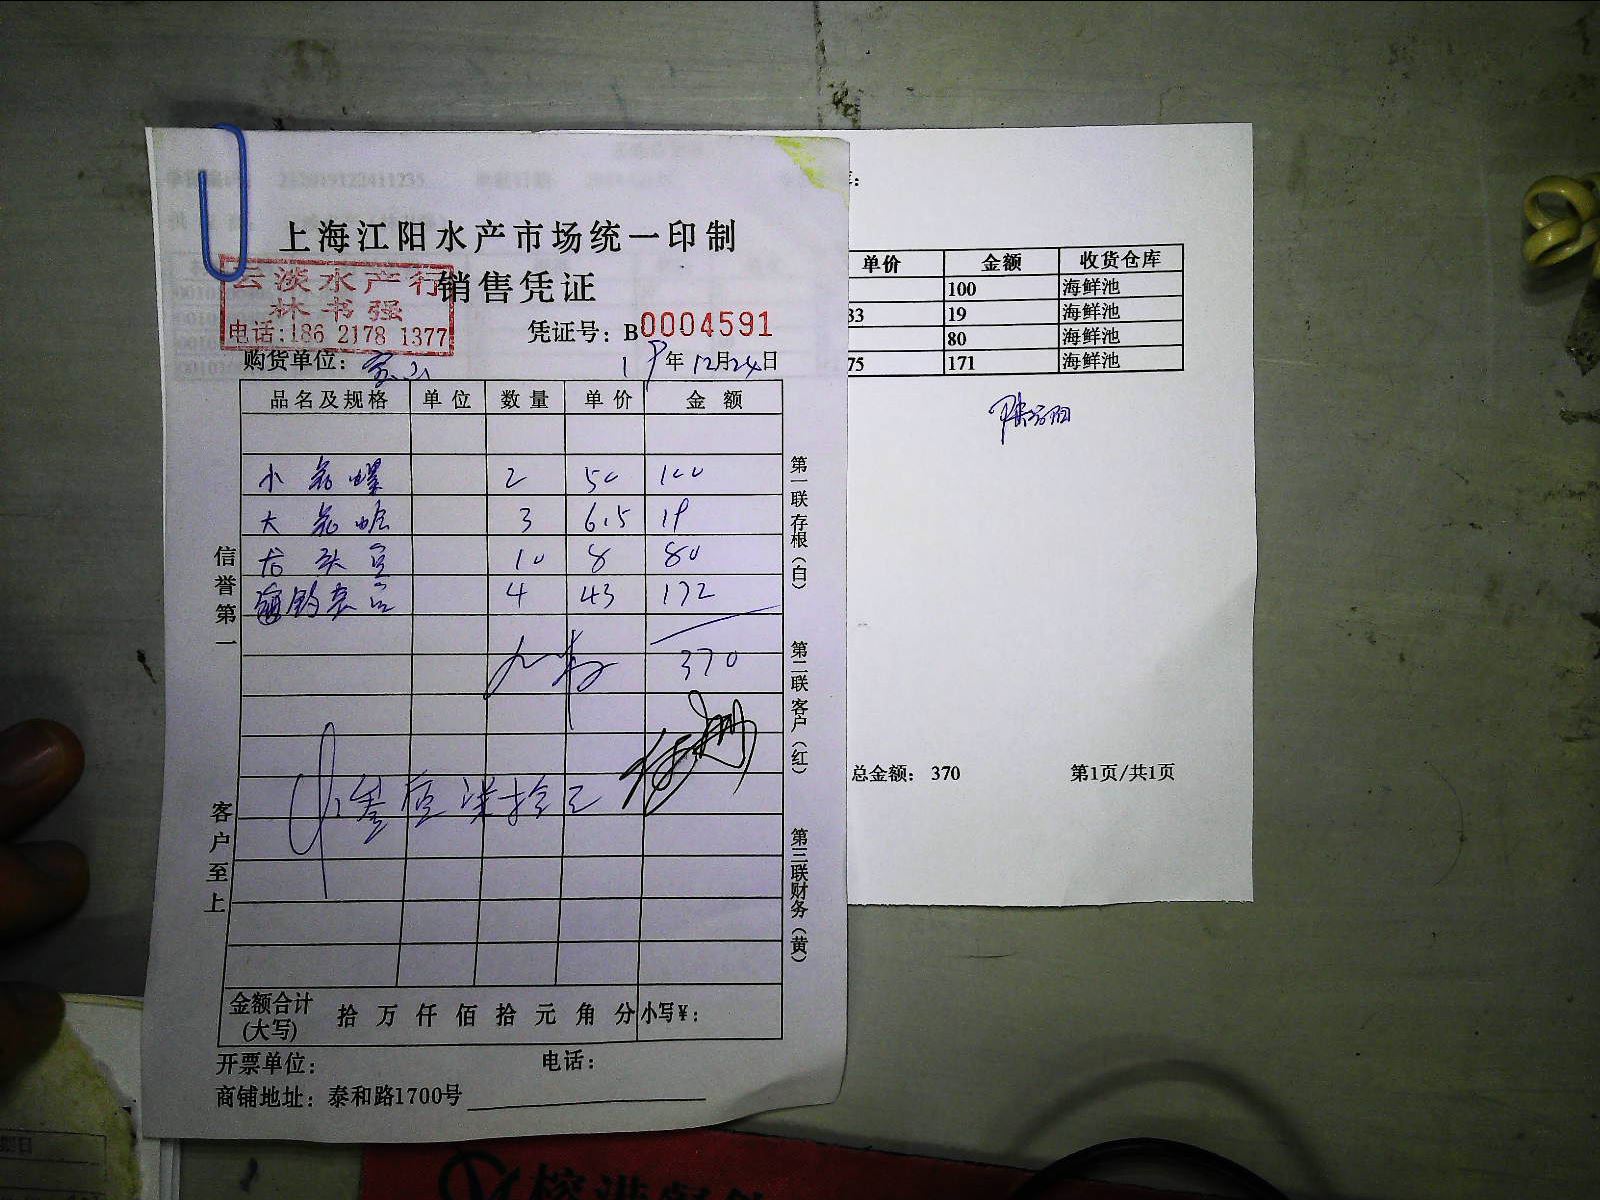 上海江阳水产市场统一印制
销售凭证
云淡水产行
林书强
电话:186 2178 1377
凭证号: B0004591
购货单位: 宝山 19年12月24日
品名及规格 单位 数量 单价 金额
小花螺 2 50 100
大花蛤 3 6.5 19
10 8 80
4 43 172
370
叁佰柒拾元
金额合计(大写) 拾 万 仟 佰 拾 元 角 分 小写¥:
开票单位: 电话:
商铺地址: 泰和路1700号
信誉第一
客户至上
第一联存根(白)
第二联客户(红)
第三联财务(黄)
单价 金额 收货仓库
100 海鲜池
33 19 海鲜池
80 海鲜池
75 171 海鲜池
总金额: 370 第1页/共1页